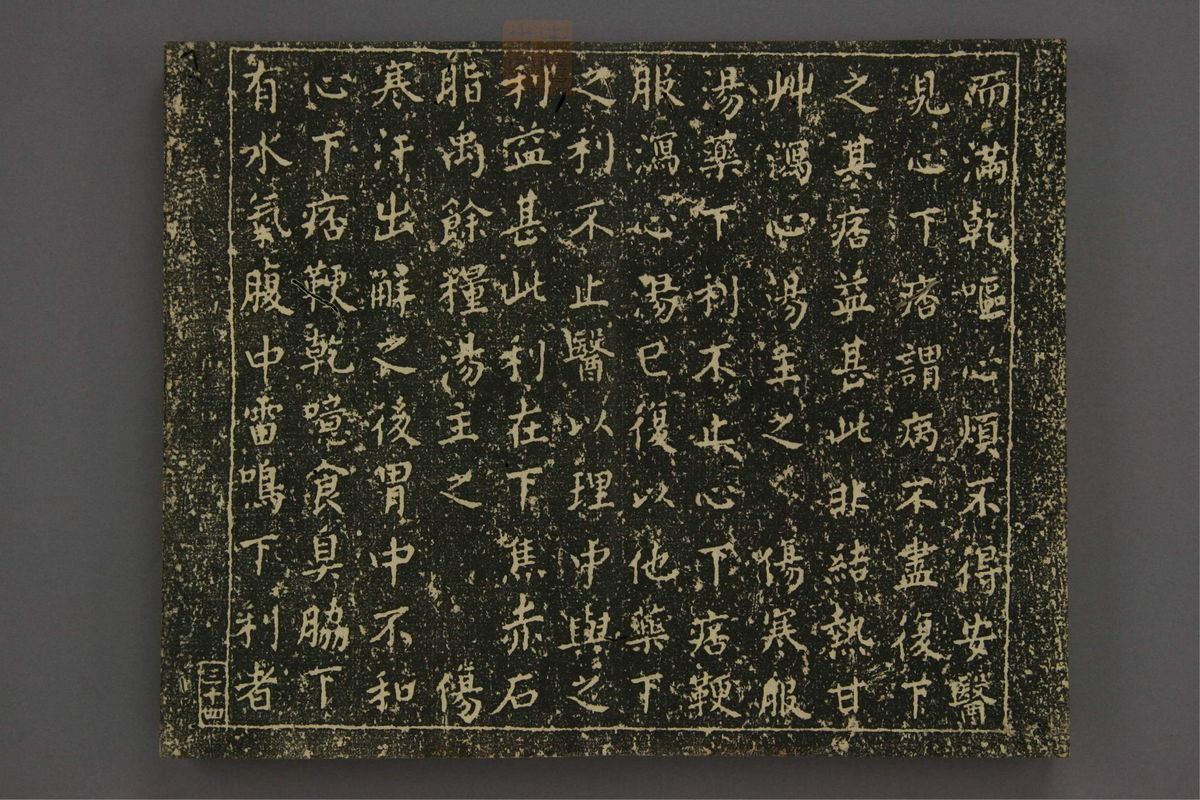 而滿乾嘔心煩不得安醫
見心下痞謂病不盡復下
之其痞益甚此非結熱甘
艸瀉心湯主之　傷寒服
湯藥下利不止心下痞鞕
服瀉心湯已復以他藥下
之利不止醫以理中與之
利益甚此利在下焦赤石
脂禹餘糧湯主之　傷
寒汗出解之後胃中不和
心下痞鞕乾噫食臭脇下
有水氣腹中雷鳴下利者
三十四